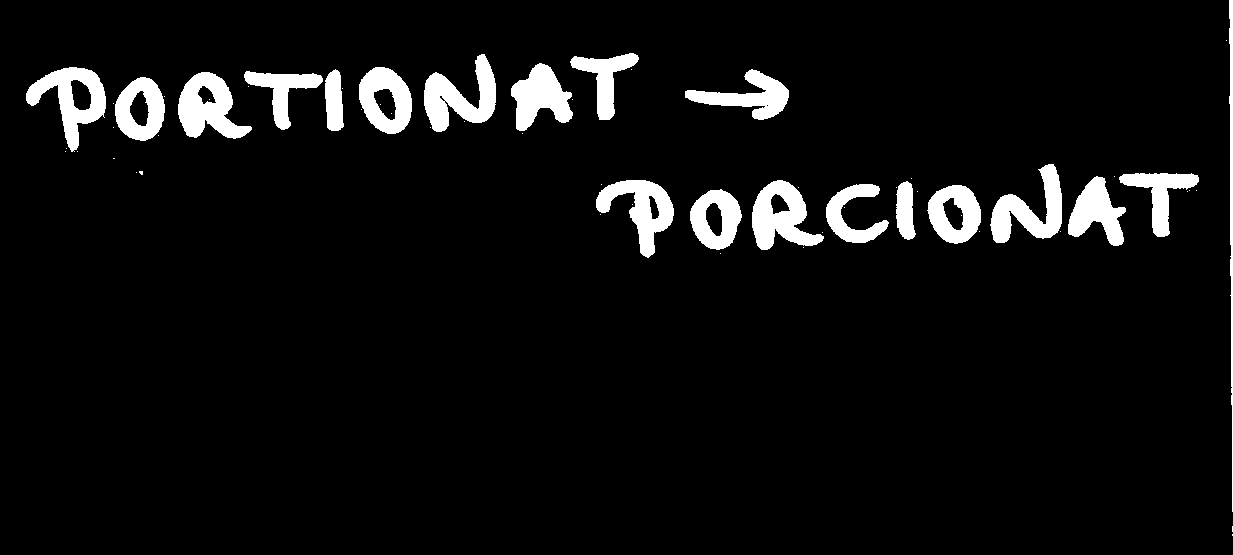 PORTIONAT →
PORCIONAT